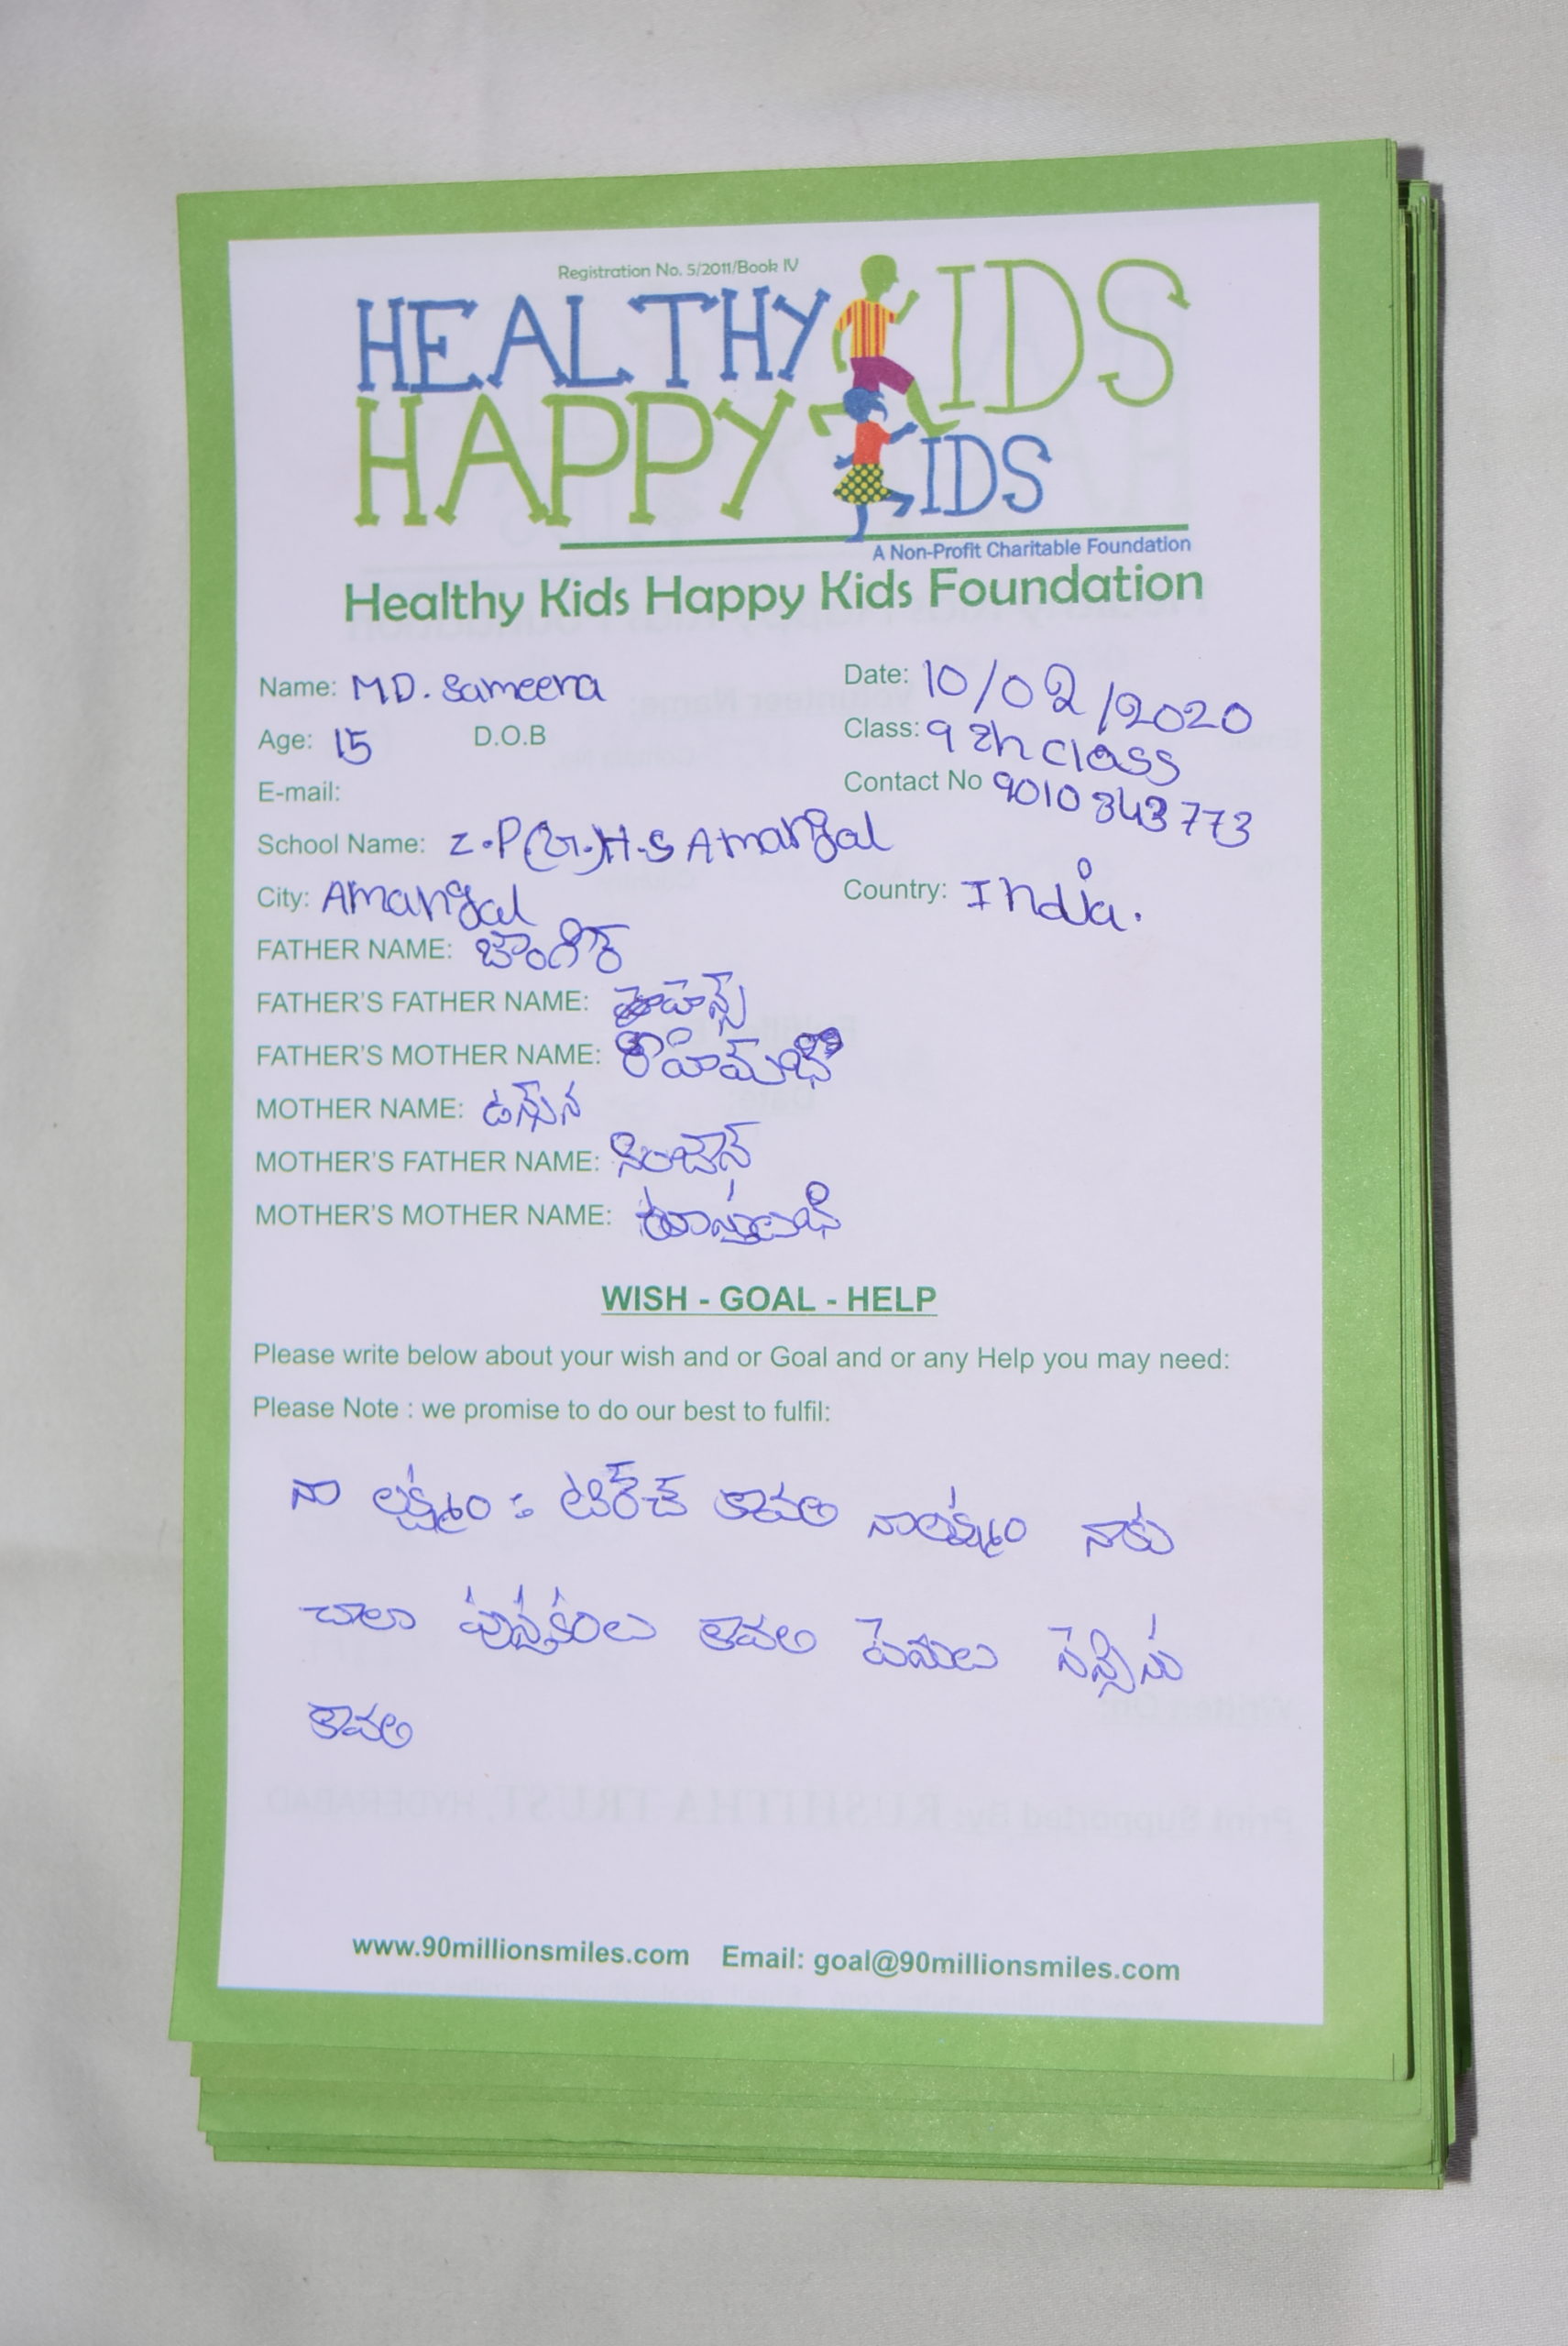 Registration No. 5/2011/Book IV
HEALTHY KIDS
HAPPY KIDS
A Non-Profit Charitable Foundation
Healthy Kids Happy Kids Foundation
Name: MD. Sameera
Date: 10/02/2020
Age: 15 D.O.B
Class: 9th class
E-mail:
Contact No 9010343773
School Name: Z.P(G.)H.S Amangal
City: Amangal
Country: India.
FATHER NAME: జాంగీర్
FATHER'S FATHER NAME:
FATHER'S MOTHER NAME:
MOTHER NAME:
MOTHER'S FATHER NAME:
MOTHER'S MOTHER NAME:
WISH - GOAL - HELP
Please write below about your wish and or Goal and or any Help you may need:
Please Note : we promise to do our best to fulfil:
నా లక్ష్యం : టిరేచ్ కావలి నాలక్ష్యం నాకు
చాలా పుస్తకంలు కావలి పెనులు పెన్సిసు
కావలి
www.90millionsmiles.com Email: goal@90millionsmiles.com